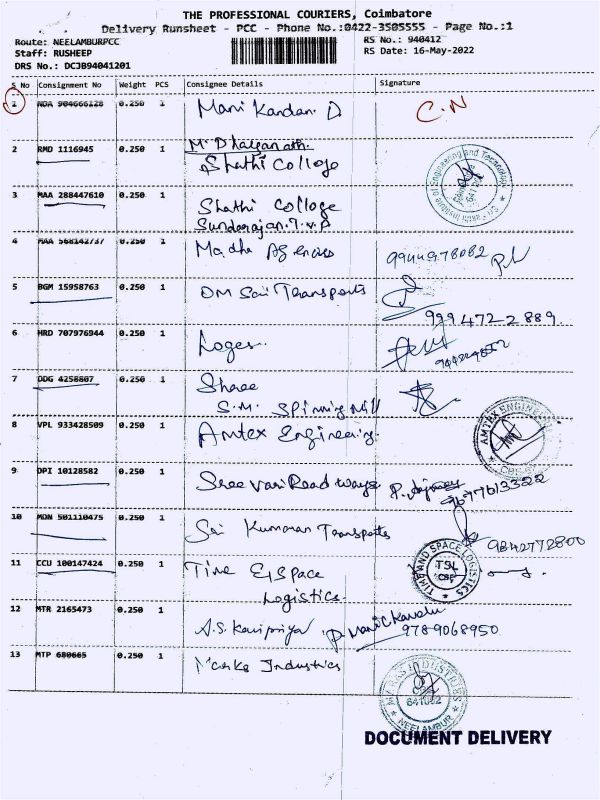 THE PROFESSIONAL COURIERS, Coimbatore
Delivery Runsheet - PCC - Phone No.:0422-3505555 - Page No.:1
Route: NEELAMBURPCC
Staff: RUSHEEP
DRS No.: DCJB94041201
RS No.: 940412
RS Date: 16-May-2022
S No Consignment No Weight PCS Consignee Details Signature
1 NDA 904666128 0.250 1 Mani Kandan. D C.N
2 RMD 1116945 0.250 1
Shathi College
3 MAA 288447610 0.250 1 Shathi College
Sundarajan.
4 MAA 568142737 0.250 1 Madha Agencies 9944978082
5 BGM 15958763 0.250 1 OM Sai Transports
9994722889
6 HRD 707976944 0.250 1 Loges.
7 DDG 4258807 0.250 1 Sharee
S.M. Spinning Mill
8 VPL 933428509 0.250 1 Amtex Engineering.
AMTEX ENGINEERING
9 DPI 10128582 0.250 1 Sree Vari Roadways
9677613322
10 MDN 501110475 0.250 1 Sri Kumaran Transports
9842772800
11 CCU 100147424 0.250 1 Time & Space
Logistics.
TIME AND SPACE LOGISTICS
TSL
CBE
12 MTR 2165473 0.250 1 A.S. Kavipriya
9789068950
13 MTP 680665 0.250 1 Marks Industries
MARKS INDUSTRIES
NEELAMBUR
DOCUMENT DELIVERY